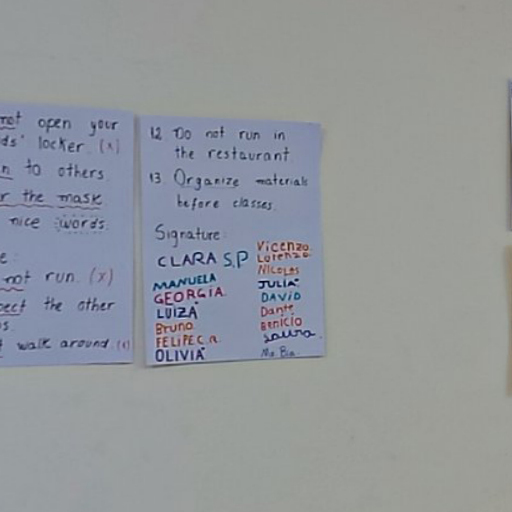 not open your
ds' locker. (x)
n to others.
r the mask
nice words.
e:
not run. (x)
pect the other
s.
walk around. (x)
12. Do not run in
the restaurant.
13. Organize materials
before classes.
Signature:
CLARA S.P
MANUELA
GEORGIA.
LUIZA
Bruno
FELIPE C.R.
OLIVIA
Vicenzo.
Lorenzo.
NICOLAS
JULIA
DAVID
Dante
Benício
Laura.
Ms. Bia.